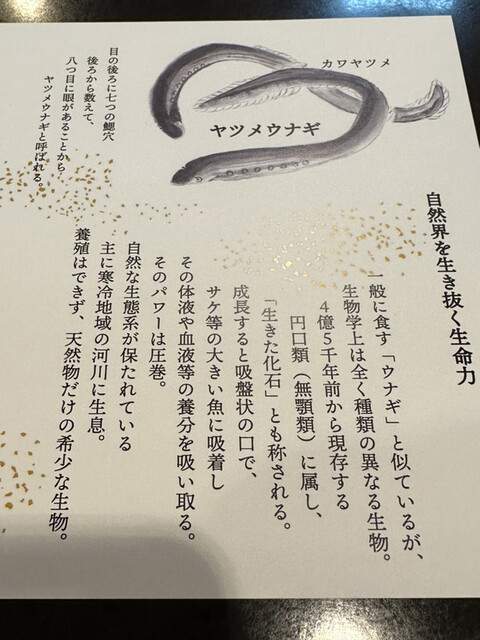 カワヤツメ
ヤツメウナギ
目の後ろに七つの鰓穴
後ろから数えて、
八つ目に眼があることから
ヤツメウナギと呼ばれる。
自然界を生き抜く生命力
一般に食す「ウナギ」と似ているが、
生物学上は全く種類の異なる生物。
4億5千年前から現存する
円口類（無顎類）に属し、
「生きた化石」とも称される。
成長すると吸盤状の口で、
サケ等の大きい魚に吸着し
その体液や血液等の養分を吸い取る。
そのパワーは圧巻。
自然な生態系が保たれている
主に寒冷地域の河川に生息。
養殖はできず、天然物だけの希少な生物。